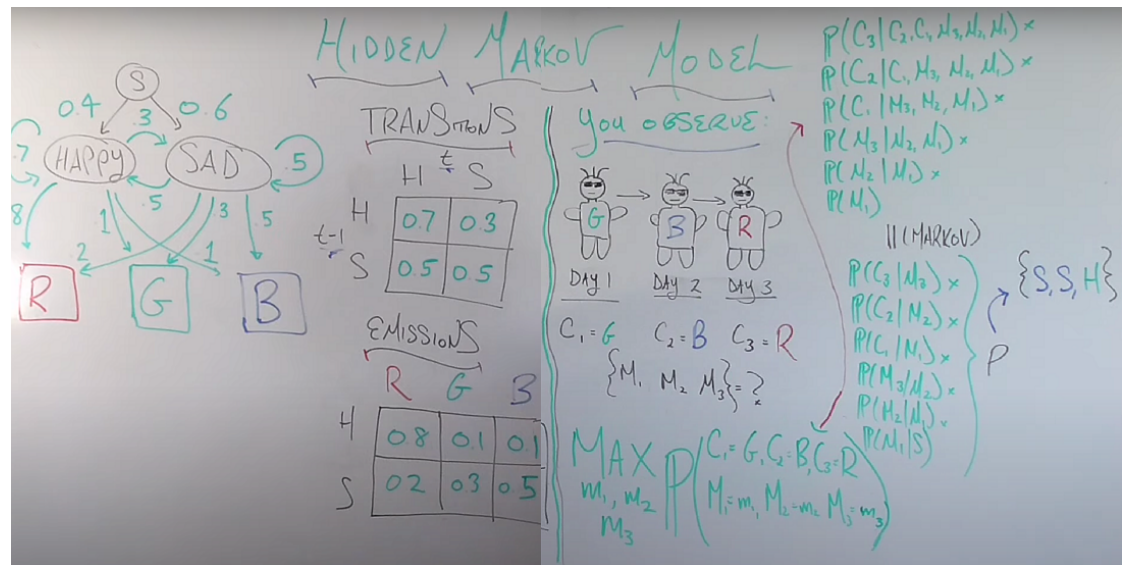 HIDDEN MARKOV MODEL
S
0.4 0.6
.3
.7 HAPPY SAD .5
.5
.8 .1 .3 .5
.2 .1
R G B
TRANSITIONS
t
H S
t-1
H 0.7 0.3
S 0.5 0.5
EMISSIONS
R G B
H 0.8 0.1 0.1
S 0.2 0.3 0.5
You OBSERVE:
G B R
DAY 1 DAY 2 DAY 3
C₁=G C₂=B C₃=R
{M₁ M₂ M₃}=?
MAX P(C₁=G, C₂=B, C₃=R
m₁, m₂ M₁=m₁, M₂=m₂ M₃=m₃)
m₃
P(C₃|C₂,C₁,M₃,M₂,M₁)×
P(C₂|C₁,M₃,M₂,M₁)×
P(C₁|M₃,M₂,M₁)×
P(M₃|M₂,M₁)×
P(M₂|M₁)×
P(M₁)
||(MARKOV)
P(C₃|M₃)×
P(C₂|M₂)×
P(C₁|M₁)×
P(M₃|M₂)×
P(M₂|M₁)×
P(M₁|S)
P
{S,S,H}